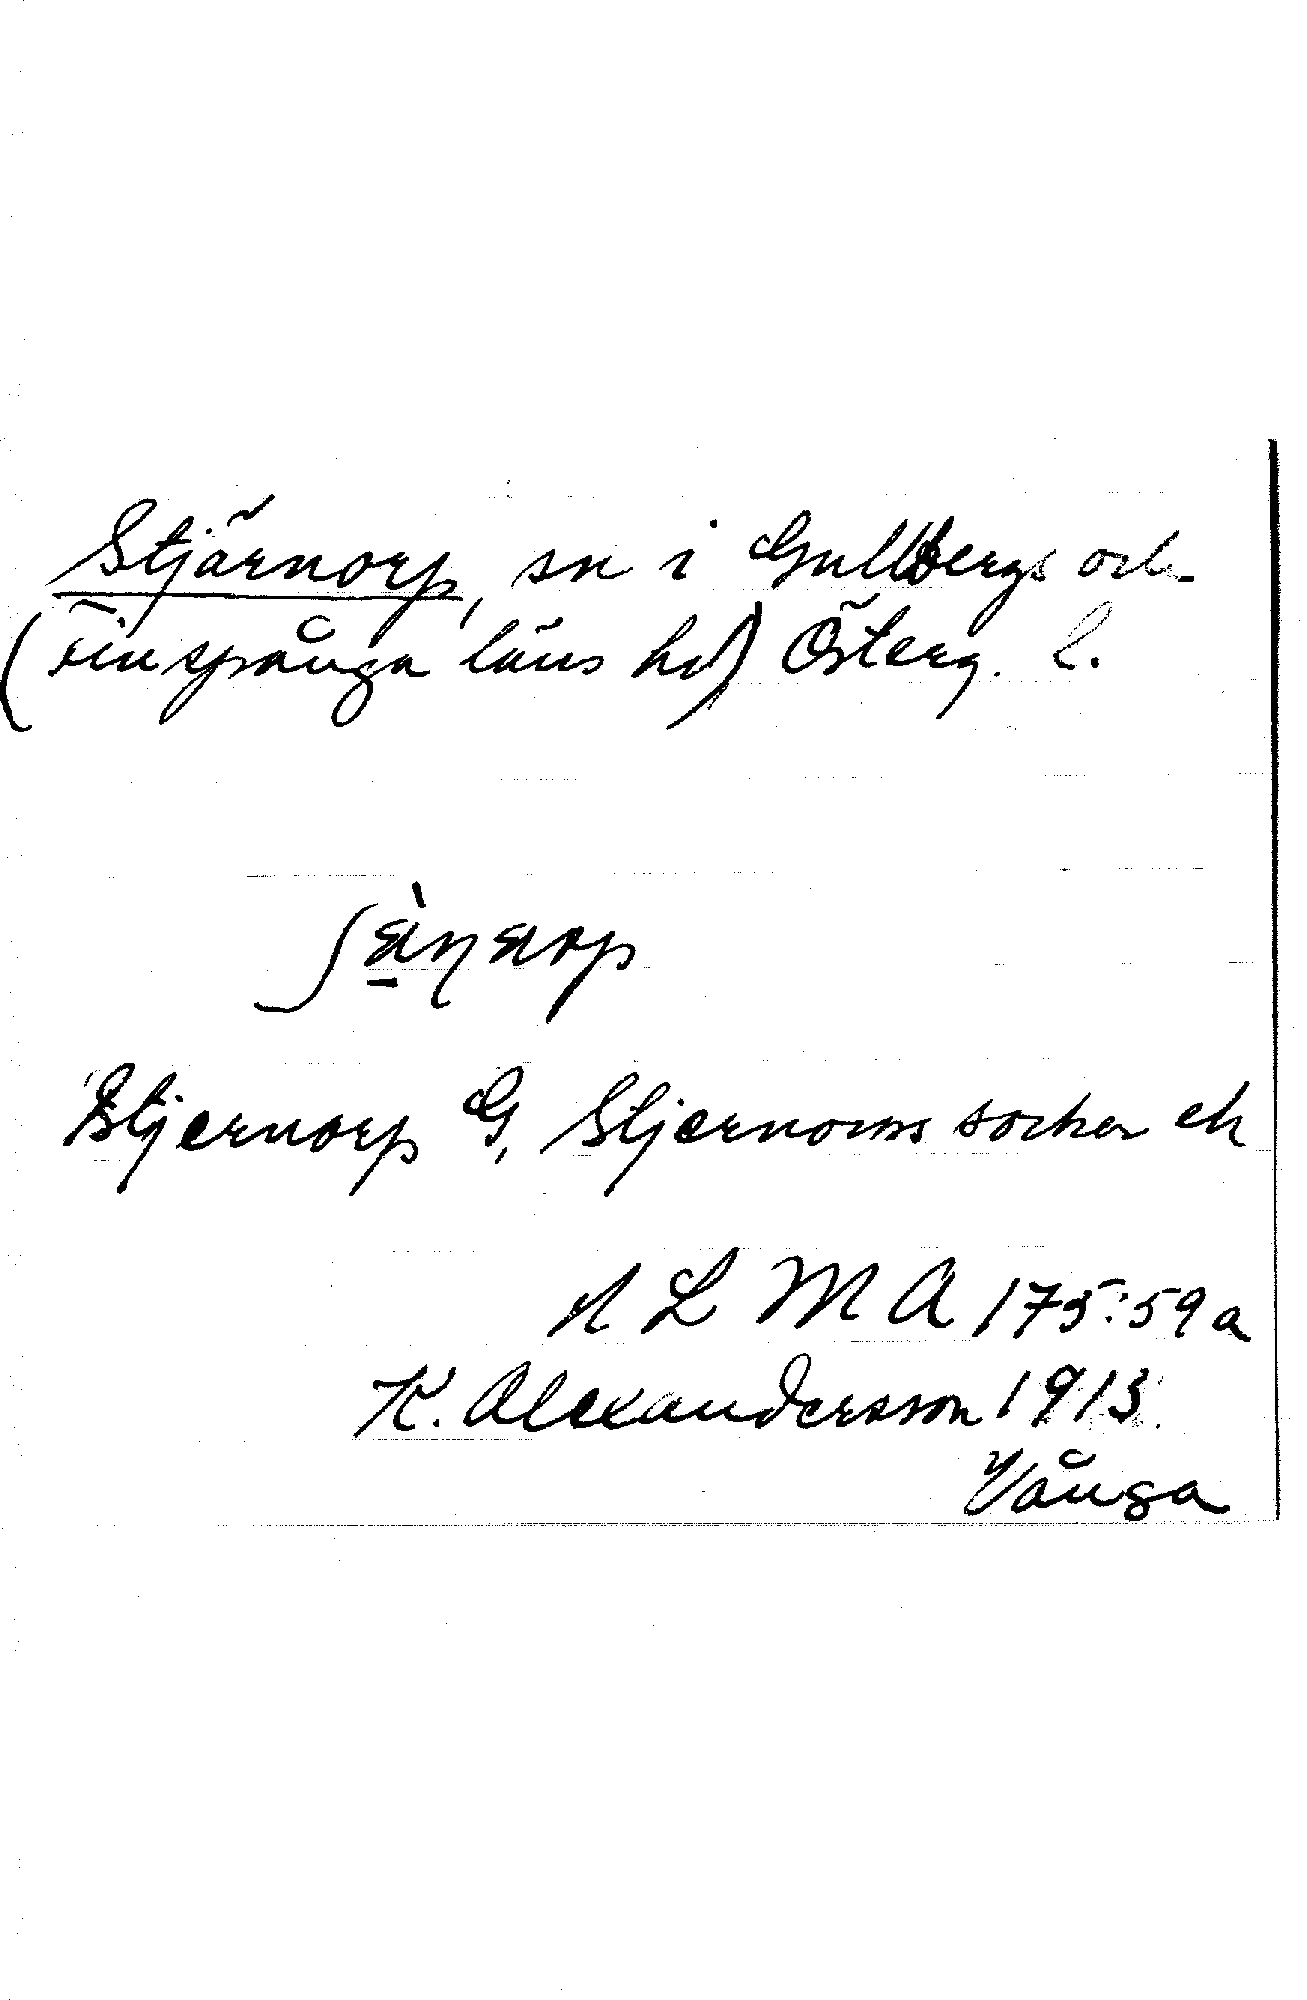 Stjärnorp, sn i Gullbergs och
(Finspånga läns hd) Österg. l.
Stjernorp G, Stjernorps socken ek
A L M A 175:59a
K. Alexandersson 1913
Vånga